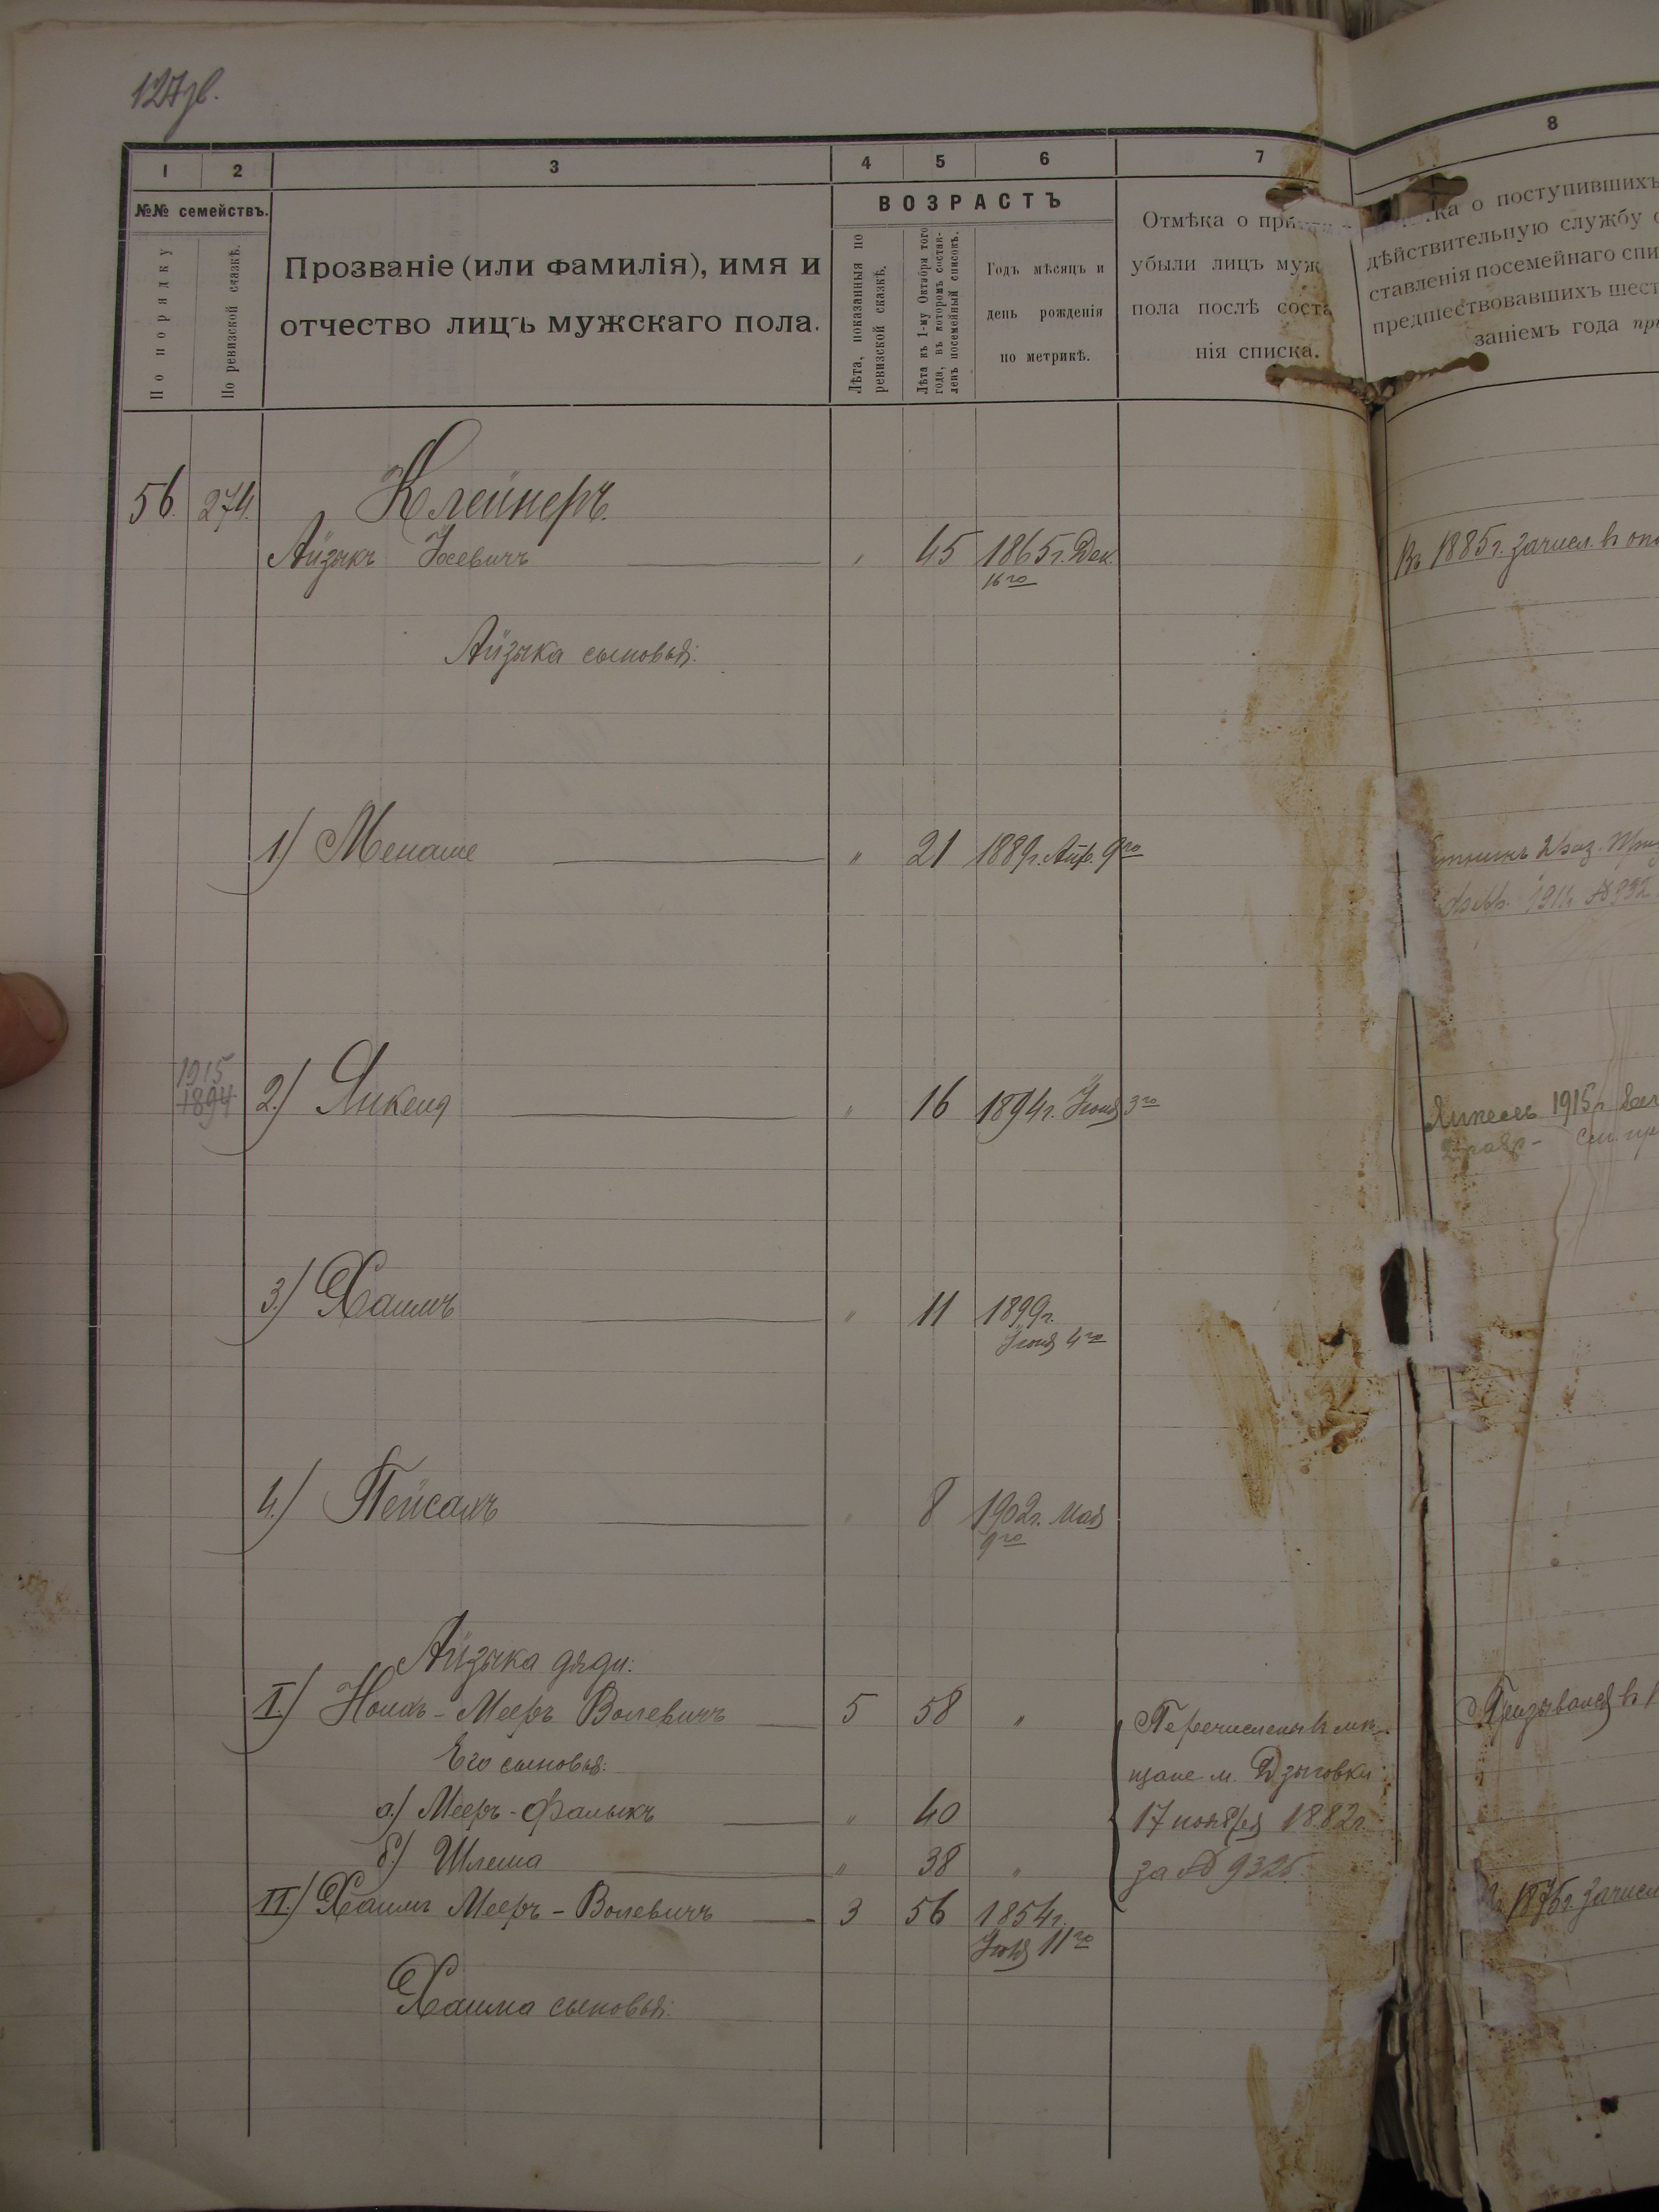 127зв.
1 2 3 4 5 6 7 8
№№ семействъ.
По порядку
По ревизской сказкѣ.
Прозваніе (или фамилія), имя и
отчество лицъ мужскаго пола.
ВОЗРАСТЪ
Лѣта, показанныя по
ревизской сказкѣ.
Лѣта къ 1-му Октября того
года, въ которомъ состав-
ленъ посемейный списокъ.
Годъ мѣсяцъ и
день рожденія
по метрикѣ.
Отмѣка о
убыли лицъ муж
пола послѣ соста
нія списка.
ка о поступившихъ
дѣйствительную службу
ставленія посемейнаго спи
предшествовавшихъ шест
заніемъ года
56. 274. Клейнеръ.
Айзыкъ Хаевичъ " 45 1865г. Дек. Въ 1885г. зачисл. въ опо
16го
Айзыка сыновья:
1.) Менаше " 21 1889г. Апр. 9го
1911г.
1915
1894 2.) Янкель " 16 1894г. Іюня 3го Янкель 1915г.
3.) Хаимъ " 11 1899г.
Іюня 4го
4.) Пейсахъ " 8 1902г. Мая
9го
Айзыка дяди:
I.) Ноихъ-Мееръ Волевичъ 5 58 " Перечислены въ мѣ- Призывался въ 1
Его сыновья: щане м. Дзыговки
а.) Мееръ-Фалыкъ " 40 17 ноября 1882г.
б.) Шлема " 38 " за № 9325.
II.) Хаимъ Мееръ-Волевичъ 3 56 1854г. 1875г. зачисл
11го
Хаима сыновья: